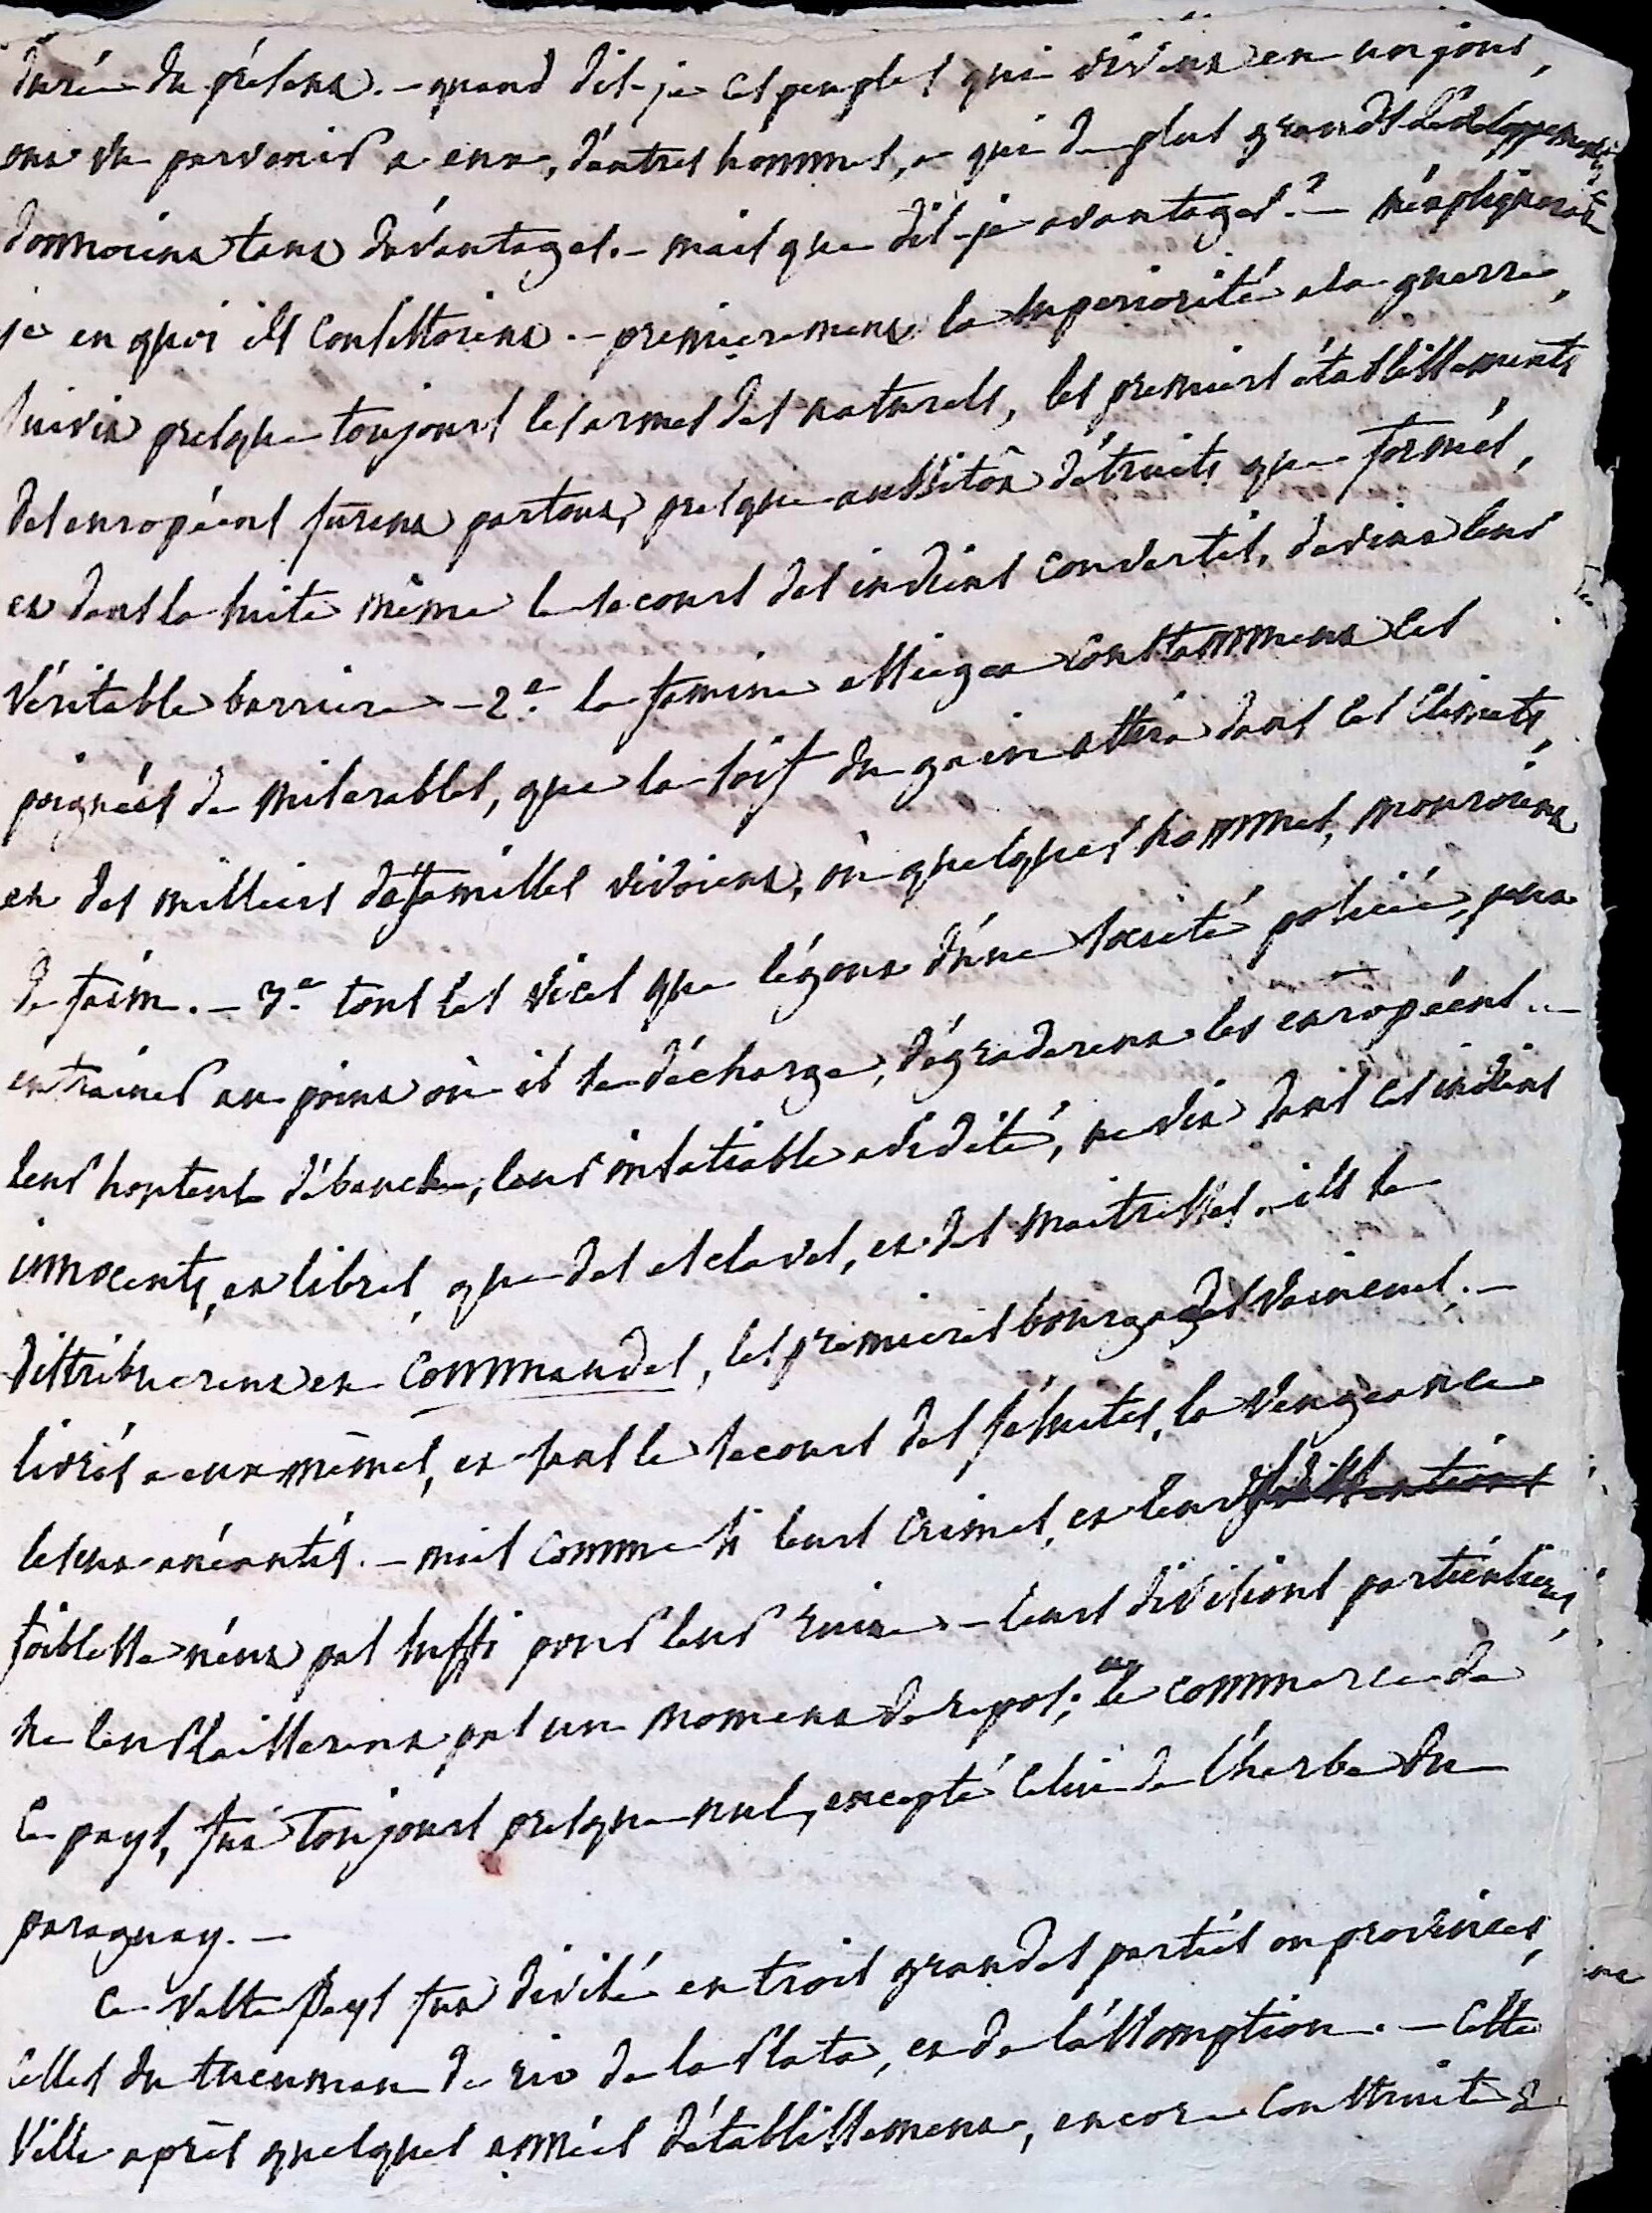 durée du présent. - quand dis-je ces peuples qui vivent en un jour,
ont vu parvenir a eux, d'autres hommes, a qui de plus grands développements
donnoient tant d'avantages. - mais que dis-je avantages? - n'expliquerai
je en quoi ils consistoient. - premierement la superiorité a la guerre,
suivit presque toujours les armes des naturels, les premiers établissements
des européens furent partout, presque aussitôt détruits que formés,
et dans la suite même le secours des indiens convertis, devint leur
véritable barriere - 2.e la famine assiegea constamment ces
poignées de miserables, que la soif du gain attira dans ces climats,
et des milliers de familles vivoient, où quelques hommes, mouroient
de faim. - 3.e tous les vices que l'égout d'une société policée, peut
entrainer au point où il se décharge, dégraderent les européens. -
leur honteuse débauche, leur insatiable avidité, ne vit dans ces indiens
innocents, et libres, que des esclaves, et des maitresses. ils se
distribuerent en commandes, les premieres bourgades vaincues. -
livrés a eux mêmes, et sans le secours des jésuites, la vengeance
les eut anéantis. - mais comme si leurs crimes, et leur
foiblesse n'eut pas suffi pour leur ruine - leurs divisions particulieres,
ne leur laisserent pas un moment de repos; le commerce de
ce pays, fut toujours presque nul, excepté celui de l'herbe du
paraguay. -
Ce vaste pays fut divisé en trois grandes parties ou provinces,
celles du tucuman de rio de la plata, et de l'assomption. - Cette
Ville après quelques années d'établissement, encore construite